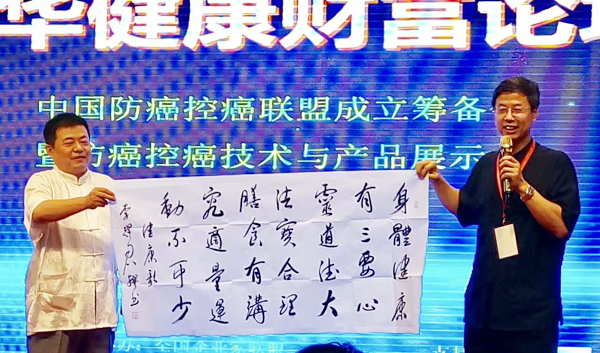 华健康财富论坛
中国防癌控癌联盟成立筹备
暨防癌控癌技术与产品展示
身體健康
有三要心
靈道德大
法寶合理
膳食有講
究適量運
動不可少
健康歌
全国企业